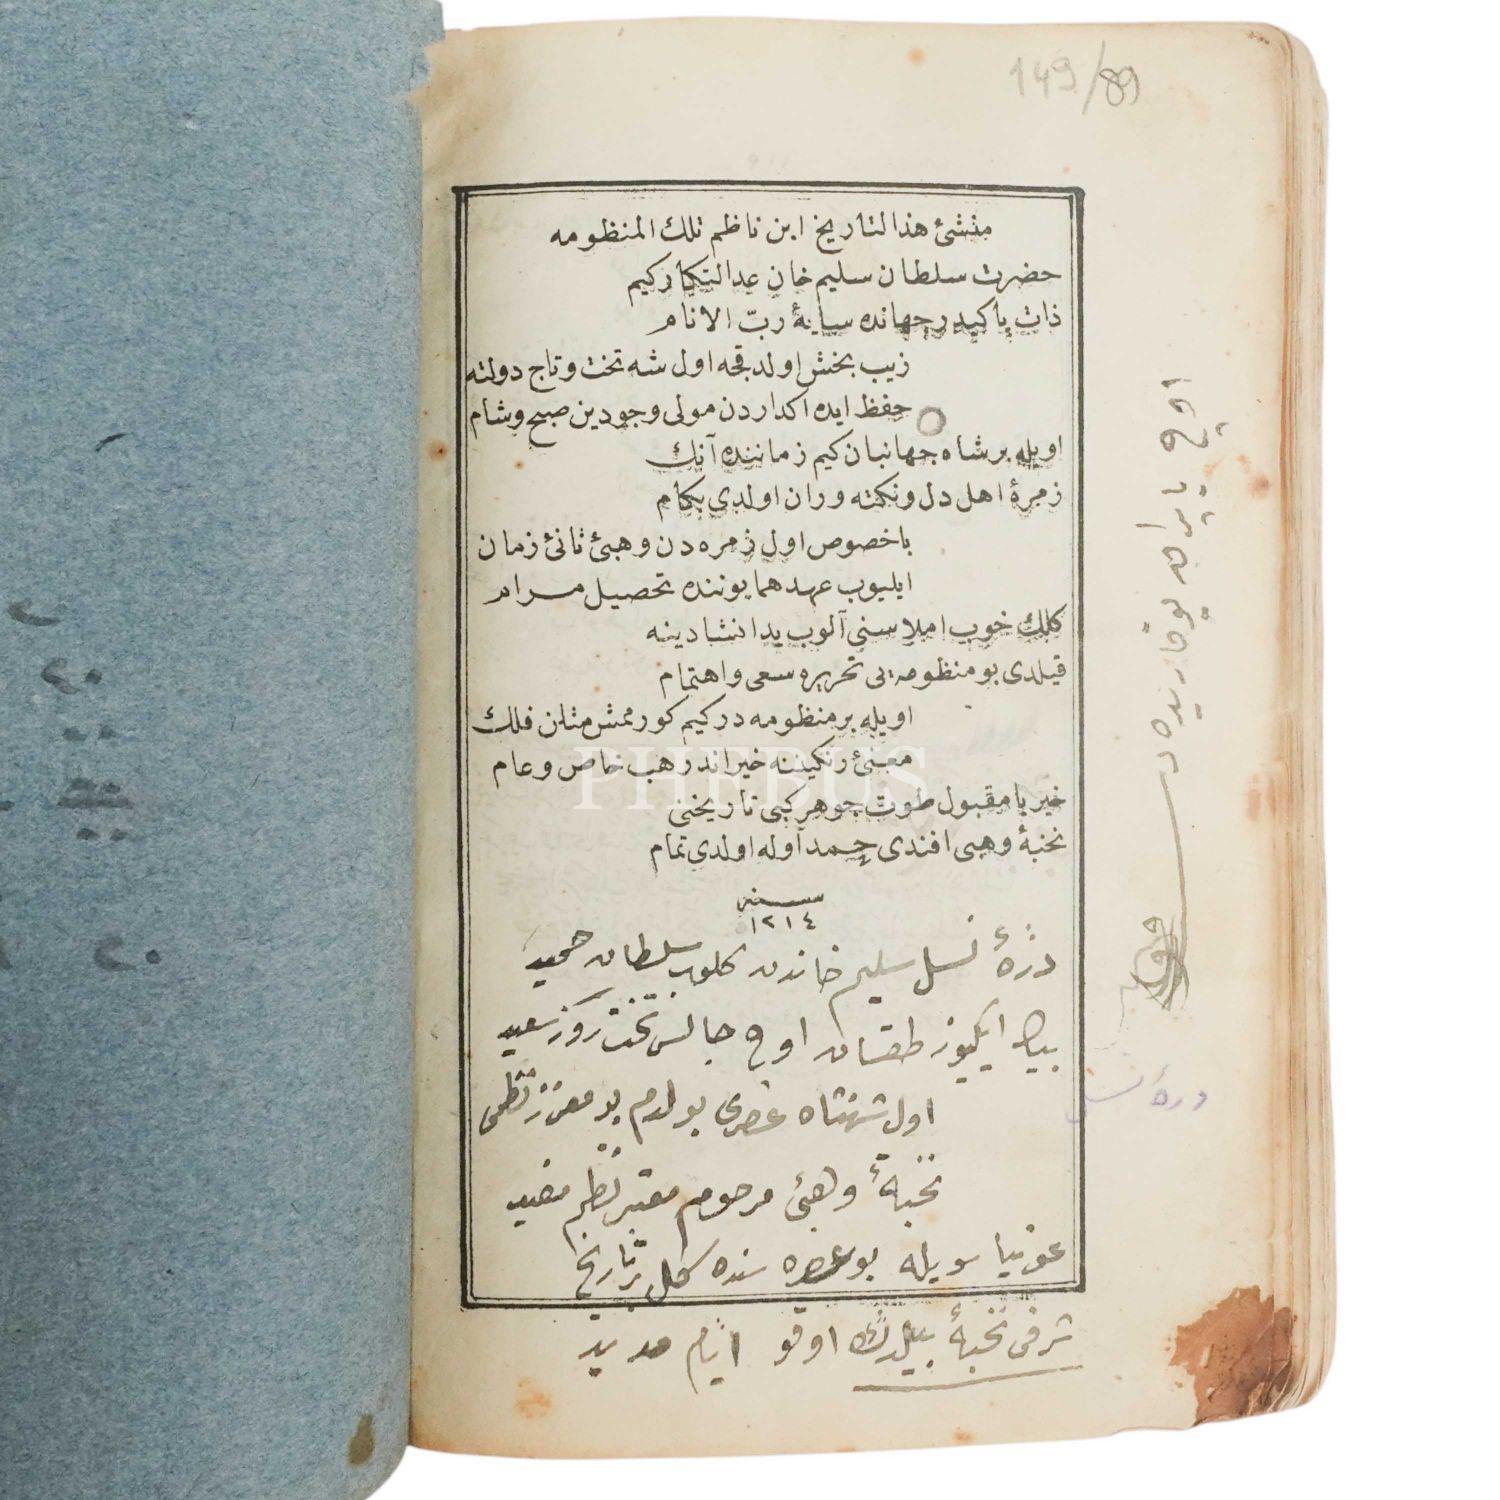 149/89
منشئ هذا التاريخ ابن ناظم تلك المنظومه
حضرت سلطان سليم خان عدالتكار كيم
ذات پاكيدر جهانده سايهٔ ربّ الانام
زيب بخش اولدقجه اول شه تخت و تاج دولته
حفظ ايده اكداردن مولى وجودين صبح و شام
اويله بر شاه جهانبان كيم زماننده آنك
زمرهٔ اهل دل و نكته وران اولدى بكام
باخصوص اول زمره دن وهبئ ثانئ زمان
ايليوب عهد همايوننده تحصيل مرام
كلك خوب املاسنى آلوب يد انشادينه
قيلدى بو منظومه يى تحريره سعى و اهتمام
اويله بر منظومه در كيم كورممش مثلن فلك
معنئ رنكيننه حيراندر هب خاص و عام
خيريا مقبول طوت جوهر كبى تاريخنى
نخبهٔ وهبى افندى حمد اوله اولدى تمام
سنه
١٢١٤
نسل سليم خاندن كلوب سلطان حميد
بيك ايكيوز طقسان اوچ جالس تخت روز سعيد
اول شهنشاه عصرى بولدم بو نظمى
نخبهٔ وهبئ مرحوم معتبر نظم مفيد
عونيا سويله بو عصره سنده كل بر تاريخ
شرفى نخبهٔ اوقو ايام مديد
PHEBUS